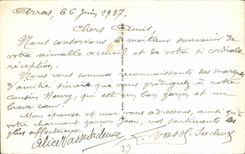 Arras, le 6 Juin 1937.
Chers Amis,
Nous conservons le meilleur souvenir de
votre aimable accueil et de votre si cordiale
réception.
Nous vous sommes reconnaissants des marques
d'amitié sincère que vous prodiguez à notre
Henry, qui est un bon garçon et un
brave cœur.
Mon épouse et moi vous adressons, ainsi qu'à
votre charmant garçon Jean, nos sentiments les
plus affectueux.